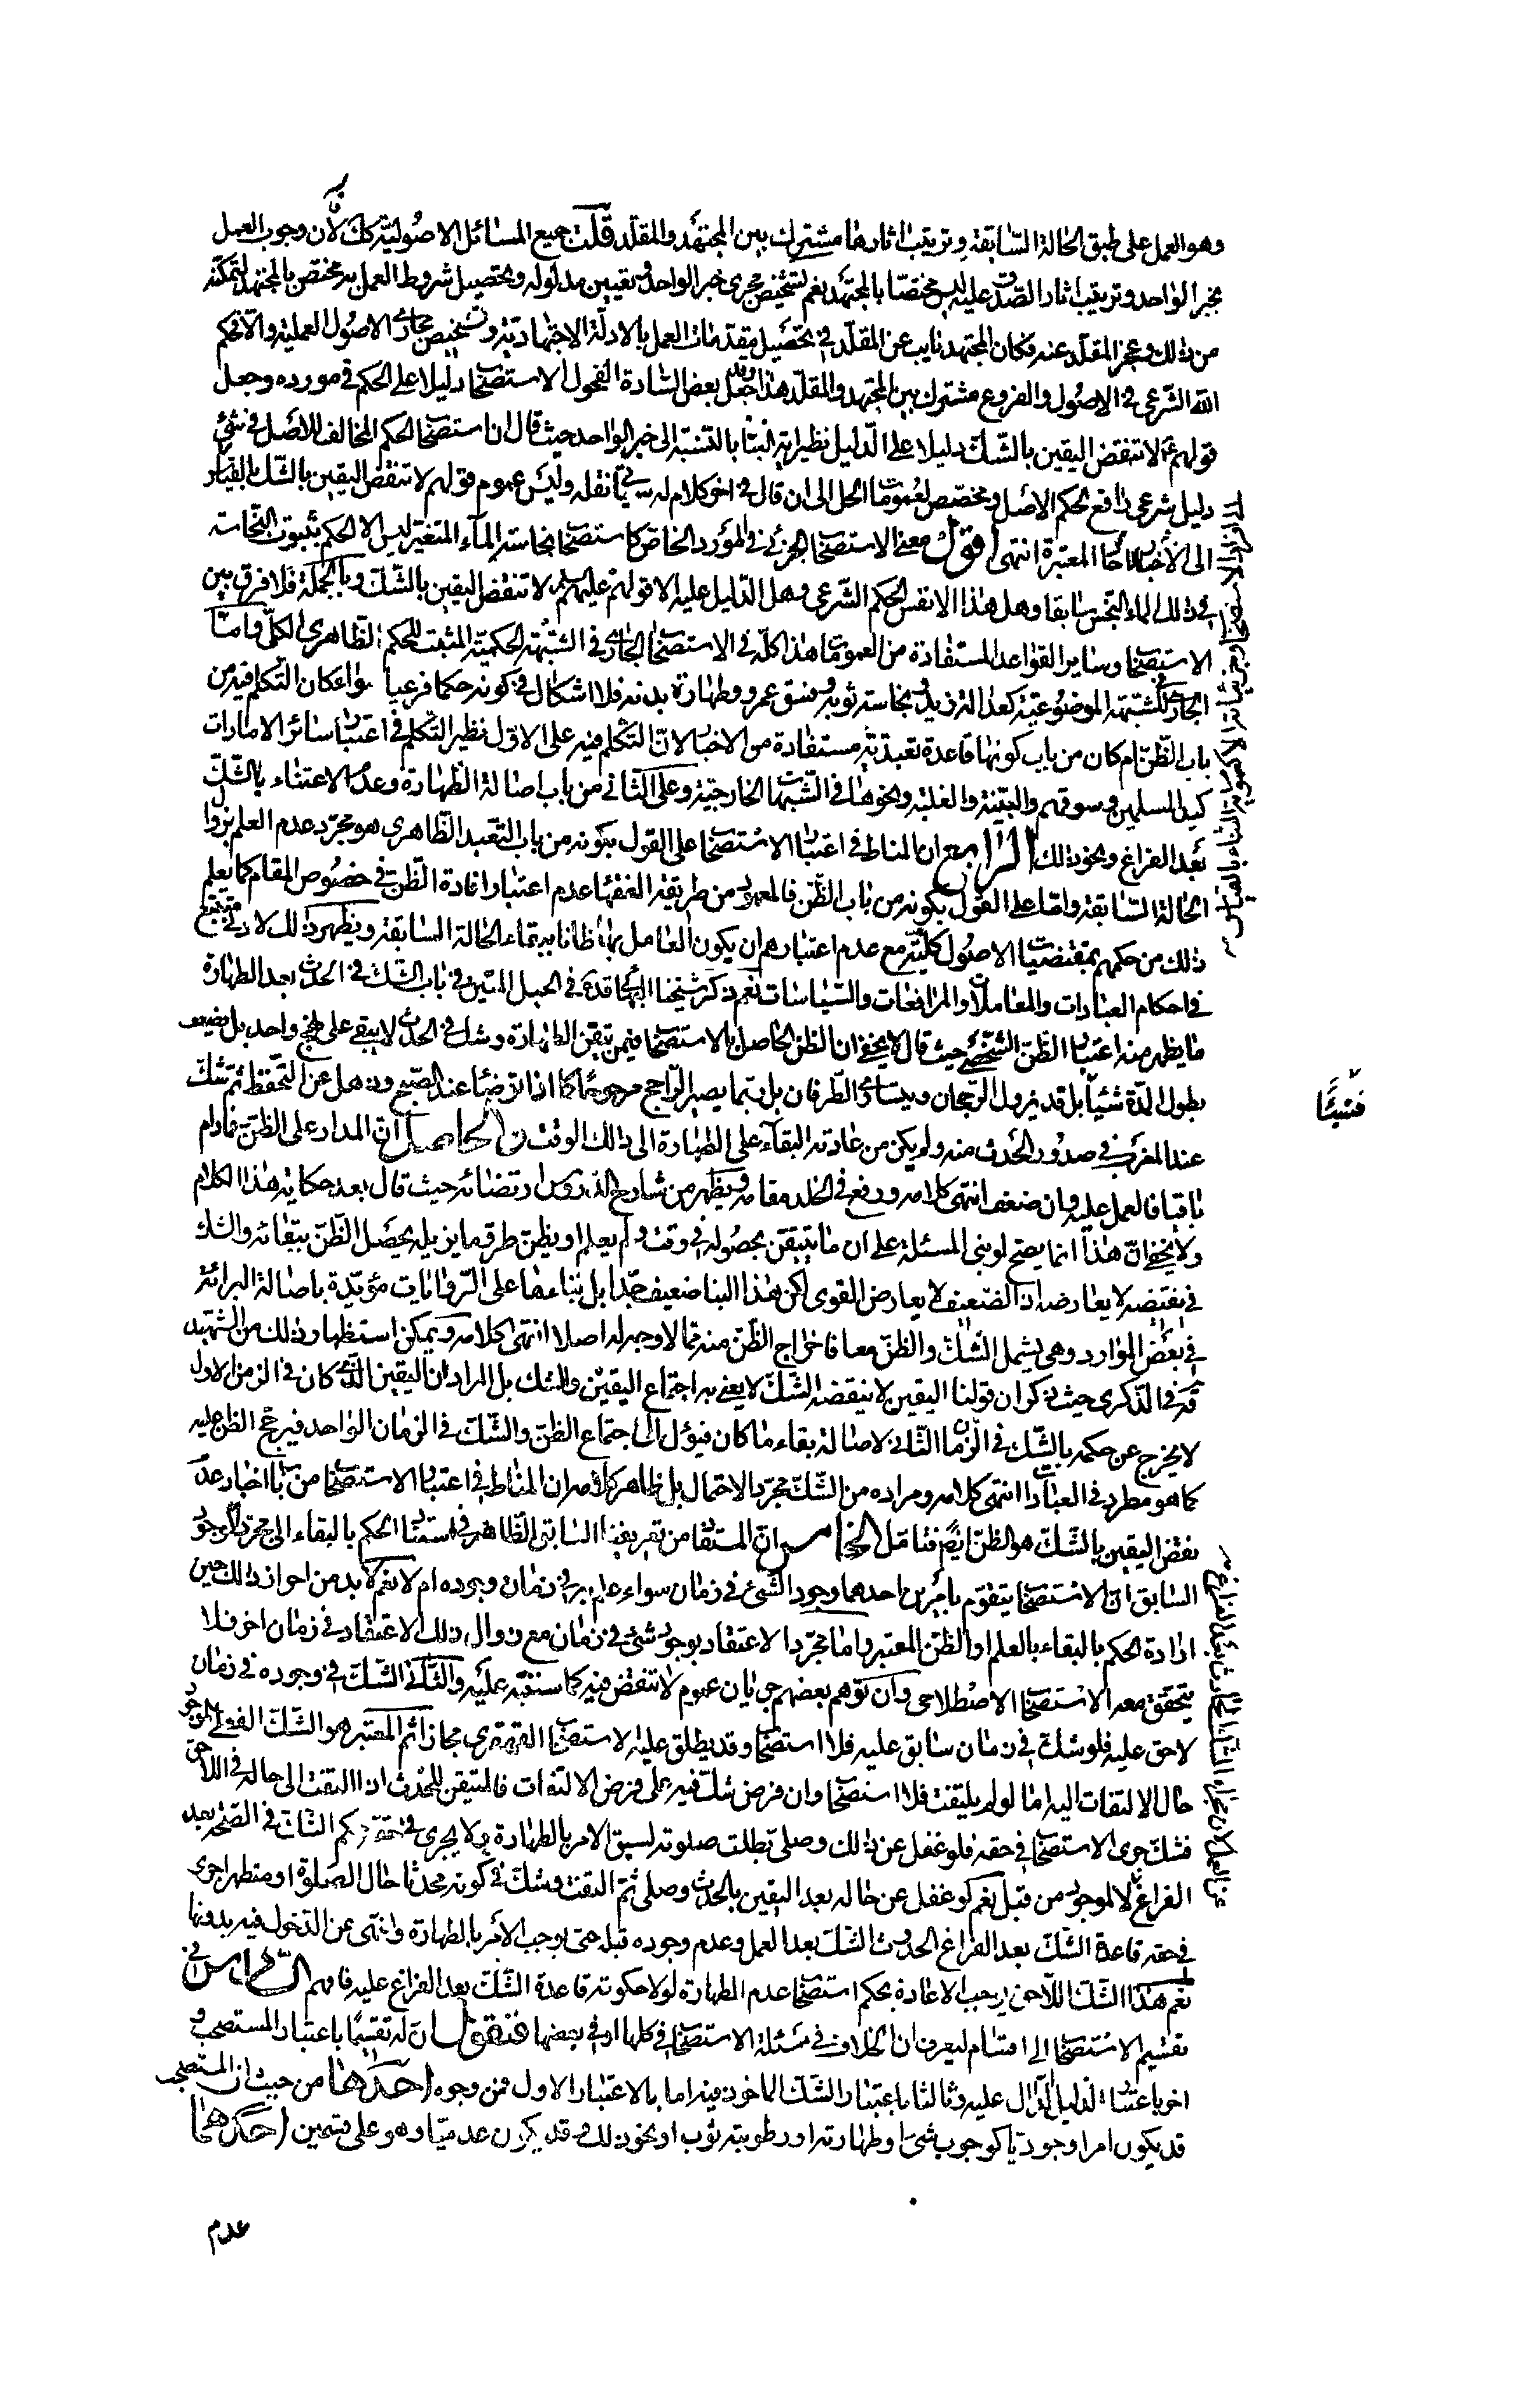 وهو العمل على طبق الحالة السّابقة وترتيب اثارها مشترك بين المجتهد والمقلّد قلت جميع المسائل الاصوليّة كك لأن وجوب العمل
بخبر الواحد وترتيب اثار الصّدق عليه ليس مختصّا بالمجتهد نعم تشخيص مجرى خبر الواحد وتعيين مدلوله وتحصيل شروط العمل به مختص بالمجتهد لتمكنه
من ذلك وعجز المقلّد عنه فكان المجتهد نايب عن المقلّد فى تحصيل مقدّمات العمل بالادلّة الاجتهاديّة وتشخيص مجارى الاصول العمليّة والّا فحكم
اللّه الشّرعى فى الاصول والفروع مشترك بين المجتهد والمقلّد هذا وقد جعل بعض السّادة الفحول الاستصحاب دليلا على الحكم فى مورده وجعل
قولهم ع لا تنقض اليقين بالشّك دليلا على الدّليل نظير اية النبأ بالنّسبة الى خبر الواحد حيث قال ان استصحاب الحكم المخالف للأصل فى شئ
دليل شرعى رافع لحكم الاصل ومخصّص لعمومات الحل الى ان قال فى اخر كلام له سيأتى نقله وليس عموم قولهم لا تنقض اليقين بالشّك بالقياس
الى الأخبار الاحاد المعتبرة انتهى اقول معنى الاستصحاب الجزئى فى المورد الخاص كاستصحاب نجاسة الماء المتغيّر ليس الا الحكم بثبوت النّجاسة
فى ذلك الماء النّجس سابقا وهل هذا الا نفس الحكم الشّرعى وهل الدّليل عليه الا قولهم عليهم السلم لا تنقض اليقين بالشّك وبالجملة فلا فرق بين
الاستصحاب وساير القواعد المستفادة من العمومات هذا كلّه فى الاستصحاب الجارى فى الشّبهة الحكميّة المثبت للحكم الظّاهرى الكلّى وامّا
الجارى فى الشّبهة الموضوعيّة كعدالة زيد ونجاسة ثوبه وفسق عمرو وطهارة بدنه فلا اشكال فى كونه حكما فرعيا سواء كان التّكلم فيه من
باب الظّن ام كان من باب كونها قاعدة تعبديّة مستفادة من الاخبار لانّ التّكلم فيه على الاوّل نظير التّكلم فى اعتبار سائر الامارات
كيد المسلمين وسوقهم والبيّنة والغلبة ونحوها فى الشّبهات الخارجيّة وعلى الثّانى من باب اصالة الطّهارة وعدم الاعتناء بالشّك
بعد الفراغ ونحو ذلك الرّابع ان المناط فى اعتبار الاستصحاب على القول بكونه من باب التّعبد الظّاهرى هو مجرّد عدم العلم بزوال
الحالة السّابقة وامّا على القول بكونه من باب الظّن فالمعهود من طريقة الفقهاء عدم اعتبار افادة الظّن فى خصوص المقام كما يعلم
ذلك من حكمهم بمقتضيات الاصول كليّة مع عدم اعتبارهم ان يكون العامل بها ظانا ببقاء الحالة السّابقة ويظهر ذلك لادنى متتبّع
فى احكام العبادات والمعاملات والمرافعات والسّياسات نعم ذكر شيخنا البهائى قده فى الحبل المتين فى باب الشّك فى الحدث بعد الطّهارة
ما يظهر منه اعتبار الظّن الشّخصى حيث قال لا يخفى ان الظن الحاصل بالاستصحاب فيمن تيقن الطّهارة وشك فى الحدث لا يبقى على نهج واحد بل يضعف
بطول المدّة شيئا بل قد يزول الرّجحان ويتساوى الطّرفان بل ربّما يصير الرّاجح مرجوحا كما اذا توضّأ عند الصّبح وذهل عن التّحفّظ ثمّ شكّ
عند المغرب فى صدور الحدث منه ولم يكن من عادته البقاء على الطّهارة الى ذلك الوقت والحاصل انّ المدار على الظّن فما دام
باقيا فالعمل عليه وان ضعف انتهى كلامه ورفع فى الخلد مقامه ويظهر من شارح الدّروس ارتضائه حيث قال بعد حكاية هذا الكلام
ولا يخفى انّ هذا انما يصح لو بنى المسئلة على ان ما يتيقّن بحصوله فى وقت ولم يعلم او يظنّ طرو ما يزيله يحصل الظّنّ ببقائه والشك
فى نقيضه لا يعارضه اذ الضّعيف لا يعارض القوى لكن هذا البنا ضعيف جّدا بل بناءها على الرّوايات مؤيّدة باصالة البرائة
فى بعض الموارد وهى يشمل الشّك والظّن معا فاخراج الظّن منه ممّا لا وجه له اصلا انتهى كلامه ويمكن استظهار ذلك من الشّهيد
قده فى الذّكرى حيث ذكر ان قولنا اليقين لا ينقضه الشّك لا يعنى به اجتماع اليقين والشّك بل المراد ان اليقين الّذى كان فى الزمن الاول
لا يخرج عن حكمه بالشّك فى الزّمان الثّانى لاصالة بقاء ما كان فيؤل الى اجتماع الظنّ والشّك فى الزمان الواحد فيرجّح الظن عليه
كما هو مطرد فى العبادات انتهى كلامه ومراده من الشّك مجرّد الاحتمال بل ظاهر كلامه ان المناط فى اعتبار الاستصحاب من باب اخبار عدم
نقض اليقين بالشّك هو الظنّ ايضا فتامّل الخامس انّ المستفاد من تعريفنا السّابق الظّاهر فى استناد الحكم بالبقاء الى مجرّد الوجود
السّابق انّ الاستصحاب يتقوّم بامرين احدهما وجود الشّئ فى زمان سواء علم به فى زمان وجوده ام لا نعم لا بد من احراز ذلك حين
ارادة الحكم بالبقاء بالعلم او الظّن المعتبر وامّا مجرّد الاعتقاد بوجود شئ فى زمان مع زوال ذلك الاعتقاد فى زمان اخر فلا
يتحقّق معه الاستصحاب الاصطلاحى وان توهم بعضهم جريان عموم لا تنقض فيه كما سننبّه عليه والثّانى الشّك فى وجوده فى زمان
لاحق عليه فلو شك فى زمان سابق عليه فلا استصحاب وقد يطلق عليه الاستصحاب القهقرى مجازا ثم المعتبر هو الشّك الفعلى الموجود
حال الالتفات اليه امّا لو لم يلتفت فلا استصحاب وان فرض شكّ فيه على فرض الالتفات فالمتيقن للحدث اذا التفت الى حاله فى اللاحق
فشكّ جرى الاستصحاب فى حقه فلو غفل عن ذلك وصلى بطلت صلوته لسبق الامر بالطهارة ولا يجرى فى حقه حكم الشّك فى الصّحة بعد
الفراغ لا الموجود من قبل نعم لو غفل عن حاله بعد اليقين بالحدث وصلى ثمّ التفت وشكّ فى كونه محدثا حال الصّلوة او متطهرا جرى
فى حقه قاعدة الشّك بعد الفراغ لحدوث الشّك بعد العمل وعدم وجوده قبله حتى يوجب الأمر بالطهارة والنّهى عن الدّخول فيه بدونها
نعم هذا الشّك اللّاحق يوجب الاعادة بحكم استصحاب عدم الطهارة لولا حكومة قاعدة الشّك بعد الفراغ عليه فافهم السّادس فى
تقسيم الاستصحاب الى اقسام ليعرف ان الخلاف فى مسئلة الاستصحاب فى كلها او فى بعضها فنقول ان له تقسيما باعتبار المستصحب و
اخر باعتبار الدّليل الدّال عليه وثالثا باعتبار الشّك الماخوذ فيه اما بالاعتبار الاول فمن وجوه احدها من حيث ان المستصحب
قد يكون امرا وجوديّا كوجوب شئ او طهارته او رطوبة ثوب او نحو ذلك وقد يكون عدميّا وهو على قسمين احدهما
عدم
فشيئا